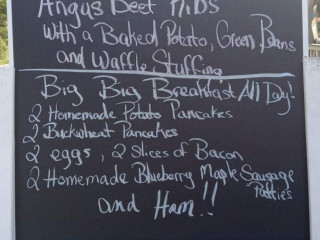 Angus Beef Ribs
with a Baked Potato, Green Beans
and Waffle Stuffing
Big Big Breakfast All Day!
2 Homemade Potato Pancakes
2 Buckwheat Pancakes
2 eggs, 2 Slices of Bacon
2 Homemade Blueberry Maple Sausage
Patties
and Ham!!